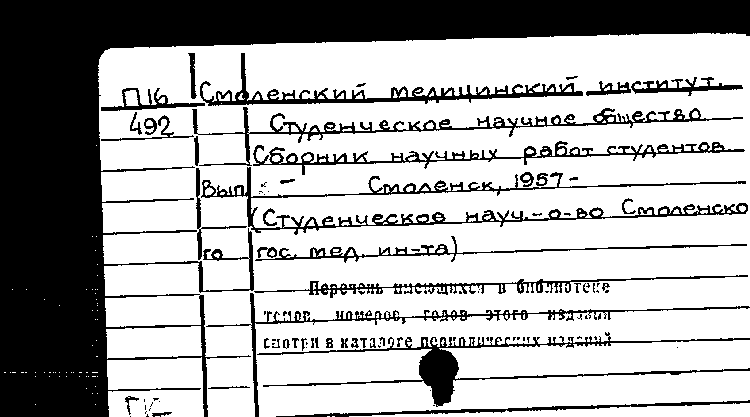 П16 Смоленский медицинский институт.
492 Студенческое научное общество
Сборник научных работ студентов
Вып. - Смоленск, 1957 -
(Студенческое науч. о-во Смоленско
го гос. мед. ин-та)
Перечень имеющихся в библиотеке
томов, номеров, годов этого издания
смотри в каталоге периодических изданий